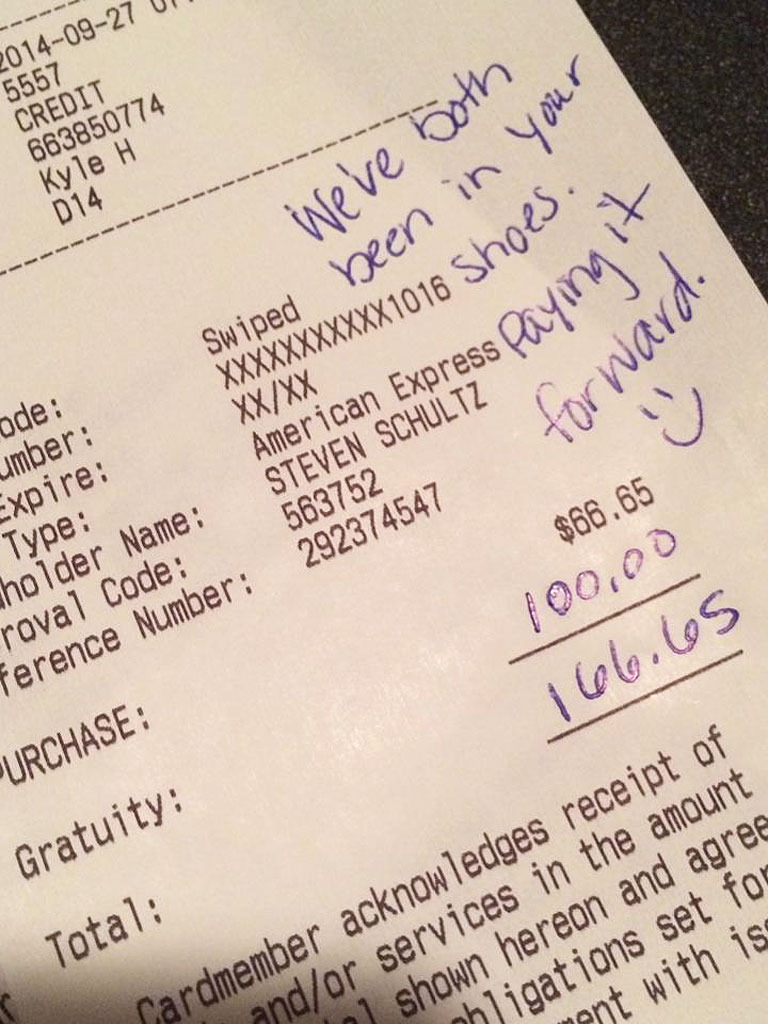 2014-09-27 07
5557
CREDIT
663850774
Kyle H
D14
We've both
been in your
shoes.
Paying it
forward.
ode: Swiped
umber: XXXXXXXXXXX1016
Expire: XX/XX
Type: American Express
holder Name: STEVEN SCHULTZ
roval Code: 563752
ference Number: 292374547
PURCHASE: $66.65
Gratuity: 100.00
Total: 166.65
Cardmember acknowledges receipt of
and/or services in the amount
shown hereon and agree
obligations set for
with is